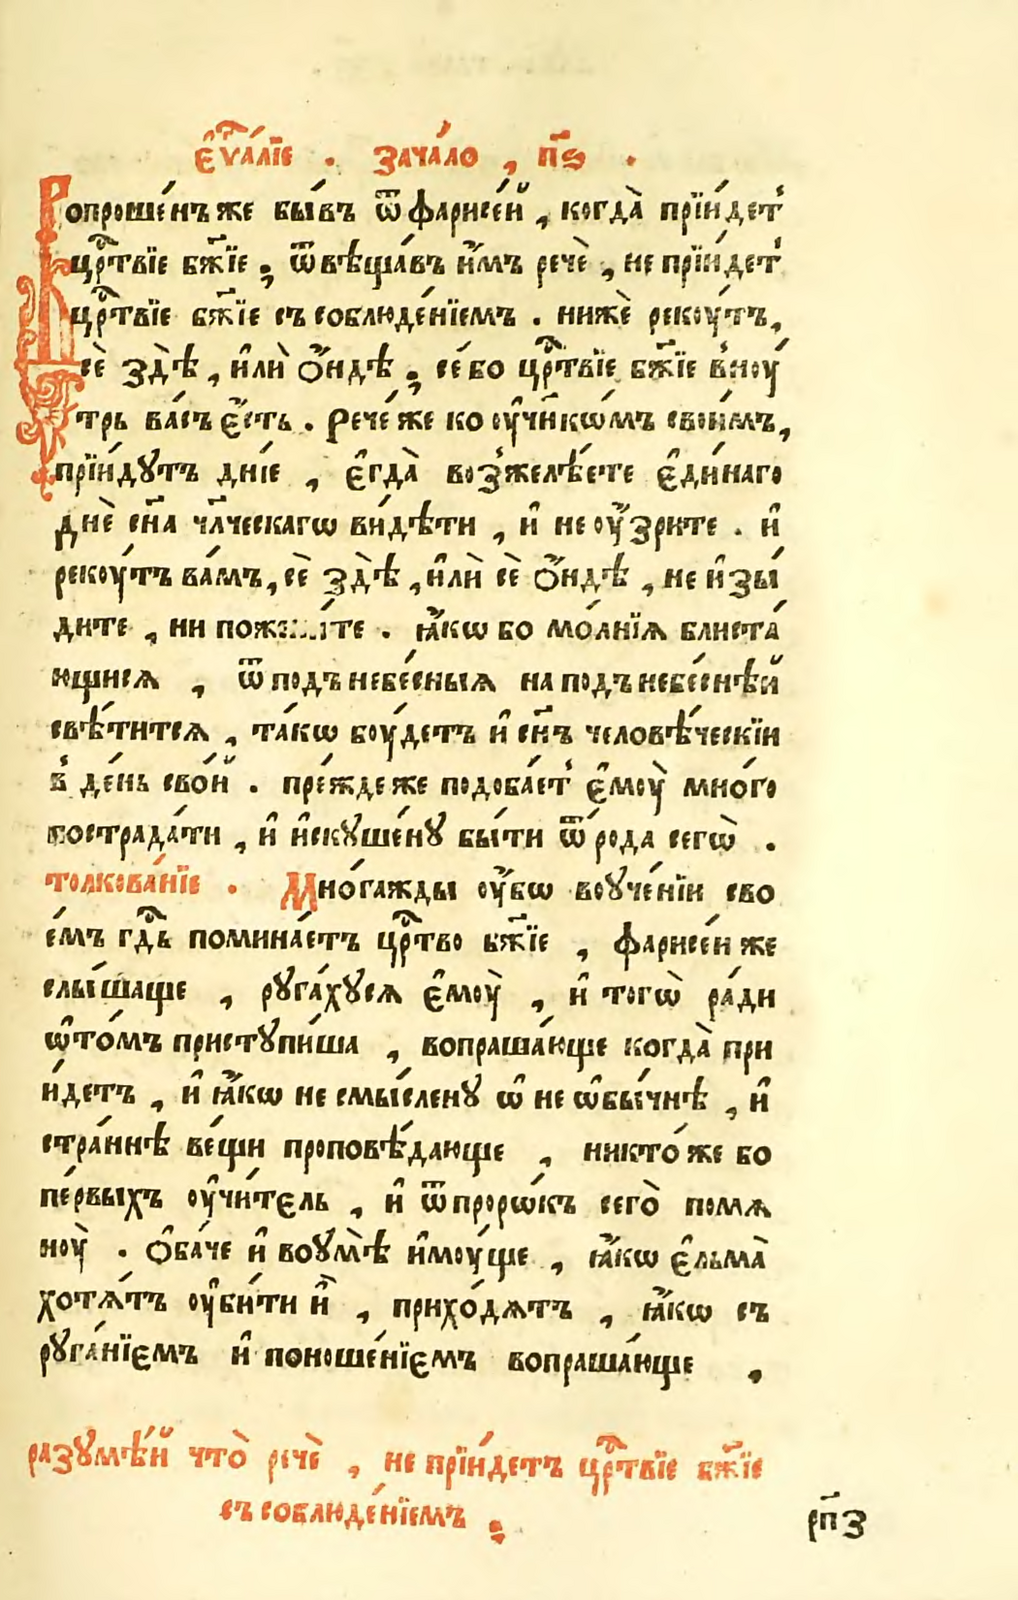 е҆ѵⷢ҇а́лїе . зача́ло , п҃ѕ .
Вопроше́нъ же бы́въ ѿ фарисе́й , когда̀ прїи́детъ
црⷭ҇твїе бж҃їе ; ѿвѣща́въ и҆̀мъ речѐ , не прїи́детъ
црⷭ҇твїе бж҃їе съ соблюде́нїемъ . нижѐ рекоу́тъ,
сѐ здѣ̀ , и҆лѝ ѻ҆́ндѣ ; се́ бо црⷭ҇твїе бж҃їе вноу́
трь ва́съ є҆́сть . Рече́ же ко оу҆чн҃кѡ́мъ свои́мъ,
прїи́дꙋтъ дні́е , є҆гда̀ возжелѣ́ете є҆ди́наго
днѐ сн҃а чл҃ческагѡ ви́дѣти , и҆ не оу҆́зрите . и҆
рекоу́тъ ва́мъ, сѐ здѣ̀ , и҆лѝ сѐ ѻ҆́ндѣ , не и҆зы́
дите , ни . ꙗ҆́кѡ бо мо́лнїѧ блиста́
ющисѧ , ѿ подънебе́сныѧ на подънебе́снѣй
свѣ́титсѧ , та́кѡ боу́детъ и҆ сн҃ъ человѣ́ческїи
в де́нь сво́й . пре́жде же подоба́етъ є҆моу̀ мно́го
пострада́ти , и҆ и҆скꙋше́нꙋ бы́ти ѿ ро́да сегѡ̀ .
толкова́нїе . Мно́гажды оу҆́бѡ во оу҆че́нїи сво
е́мъ гдⷭ҇ь помина́етъ црⷭ҇тво бж҃їе , фарисе́и же
слы́шаще , рꙋга́хꙋсѧ є҆моу̀ , и҆ тогѡ̀ ра́ди
ѡ҆ то́мъ пристꙋпи́ша , вопраша́юще когда̀ при
и́детъ , и҆ ꙗ҆́кѡ не смы́сленꙋ ѡ҆ не ѡ҆бы́чнѣ , и҆
стра́ннѣ ве́щи проповѣ́дающе , никто́ же бо
пе́рвыхъ оу҆чи́тель , и҆ ѿ проро́къ сего̀ помѧ
ноу̀ . ѻ҆ба́че и҆ во оумѣ̀ и҆моу́ще , ꙗ҆́кѡ є҆льма̀
хотѧ́тъ оу҆би́ти и҆̀ , прихо́дѧтъ , ꙗ҆́кѡ съ
рꙋга́нїємъ и҆ поноше́нїємъ вопраша́юще ,
разꙋмѣ́й что̀ речѐ , не прїи́детъ црⷭ҇твїе бж҃їе
съ соблюде́нїемъ ;
рп҃з